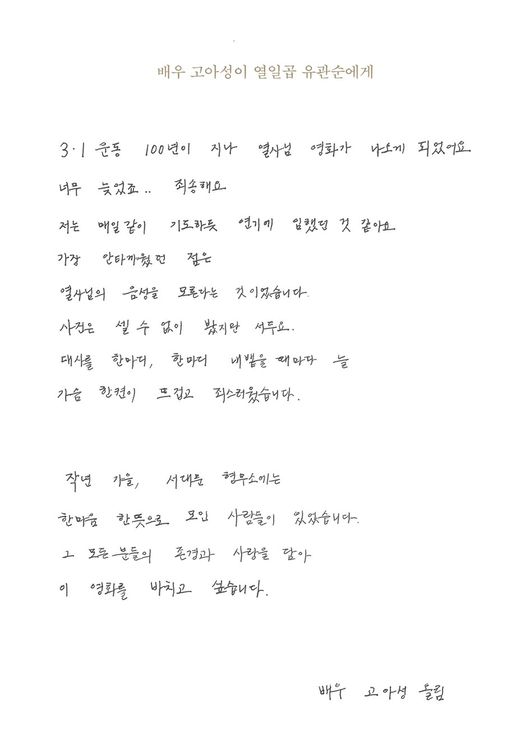 배우 고아성이 열일곱 유관순에게
3·1 운동 100년이 지나 열사님 영화가 나오게 되었어요
너무 늦었죠.. 죄송해요
저는 매일같이 기도하듯 연기에 임했던 것 같아요
가장 안타까웠던 점은
열사님의 음성을 모른다는 것이었습니다.
사진은 셀 수 없이 봤지만 서두요.
대사를 한마디, 한마디 내뱉을 때마다 늘
가슴 한켠이 뜨겁고 죄스러웠습니다.
작년 가을, 서대문 형무소에는
한마음 한뜻으로 모인 사람들이 있었습니다.
그 모든 분들의 존경과 사랑을 담아
이 영화를 바치고 싶습니다.
배우 고아성 올림